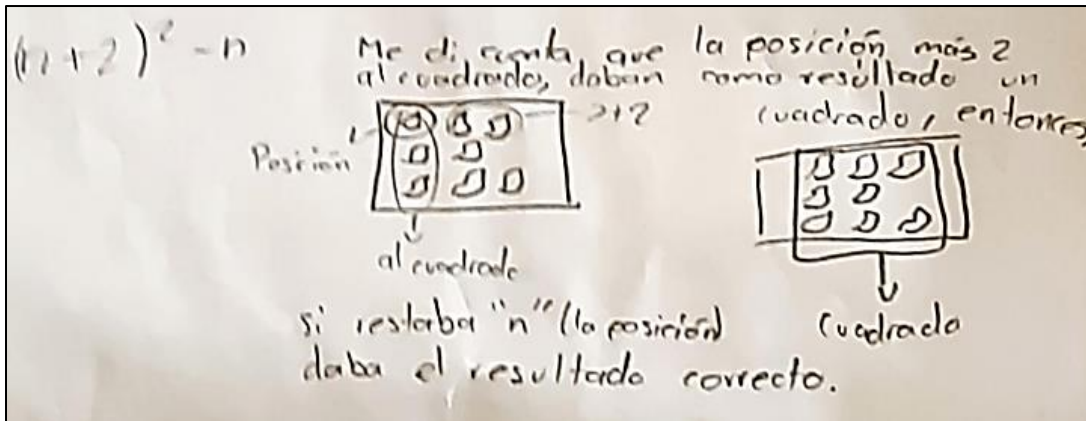 (n+2)² - n
Me di cuenta, que la posición más 2
al cuadrado, daban como resultado un
cuadrado, entonces,
Posición 1
al cuadrado
cuadrado
si restaba "n" (la posición)
daba el resultado correcto.